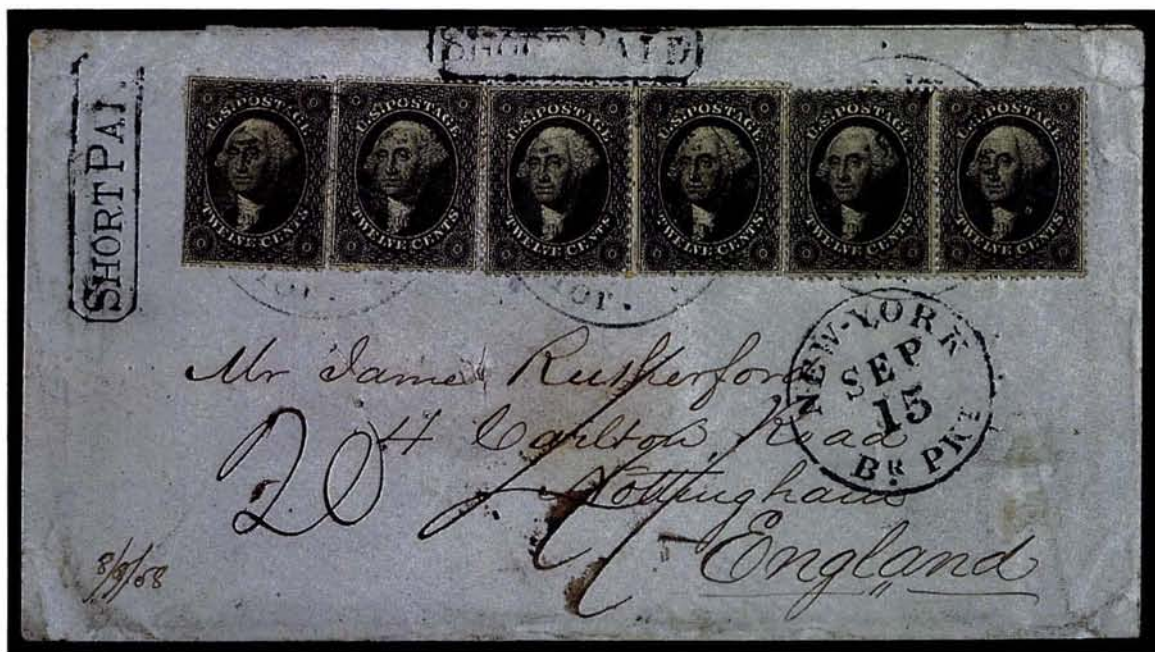 SHORT PAID
SHORT PAI
U.S. POSTAGE TWELVE CENTS
U.S. POSTAGE TWELVE CENTS
U.S. POSTAGE TWELVE CENTS
U.S. POSTAGE TWELVE CENTS
U.S. POSTAGE TWELVE CENTS
U.S. POSTAGE TWELVE CENTS
NEW-YORK
SEP
15
BR. PKT
Mr James Rutherford
4 Carlton Road
Nottingham
England
20
8/9/58